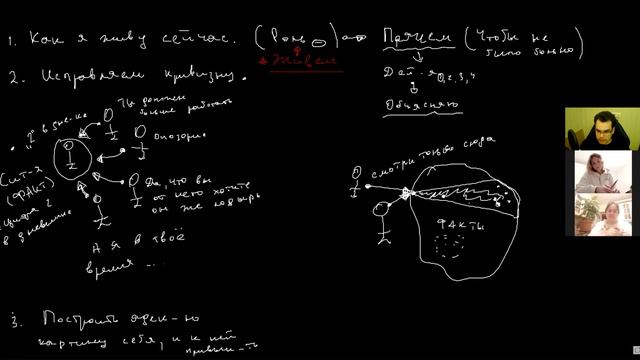 1. Как я живу сейчас. (Роль) → Прячем (Чтобы не было больно)
* Живем
Дей-я 1,2,3,4
Объясняю
2. Исправляем кривизну.
Ты должен больше работать
Опозорил
Сит-я (ФАКТ)
2 в дневнике
Да, что вы от него хотите он же
А я в твоё время ...
смотри только сюда
факты
3. Построить адек-ю картину себя, и к ней